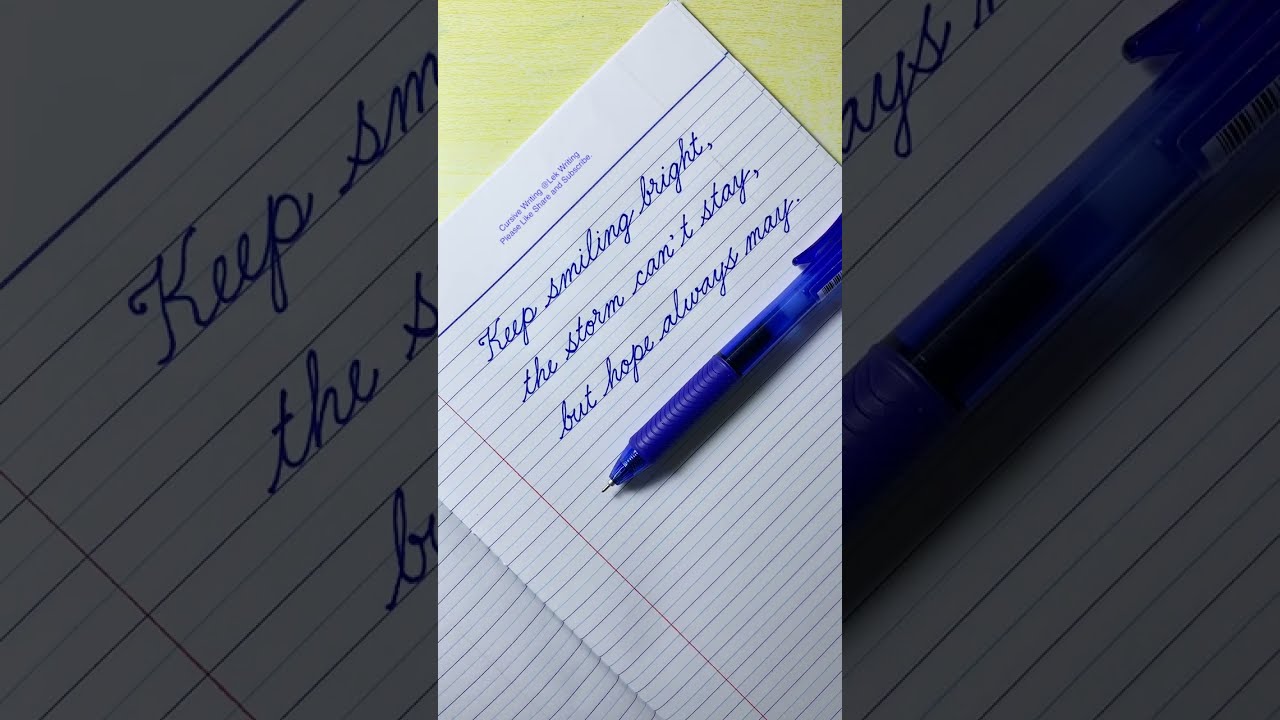 Cursive Writing @Lek Writing
Please Like Share and Subscribe.
Keep smiling bright,
the storm can't stay,
but hope always may.